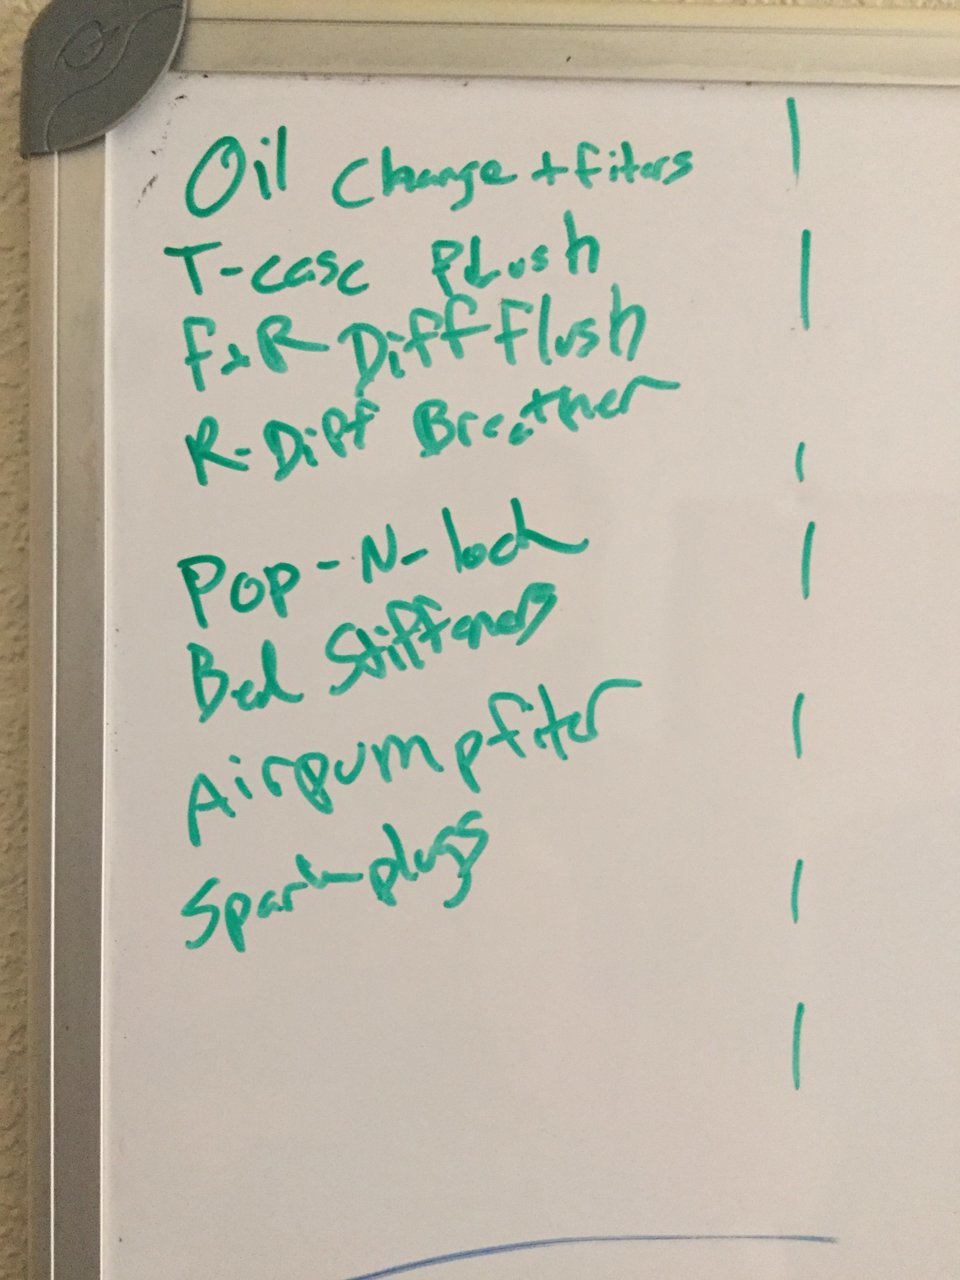 Oil Change + fiters
T-case Flush
F&R Diff flush
R-Diff Breather
Pop-N-lock
Bed Stiffeners
Airpump fiter
Spark plugs